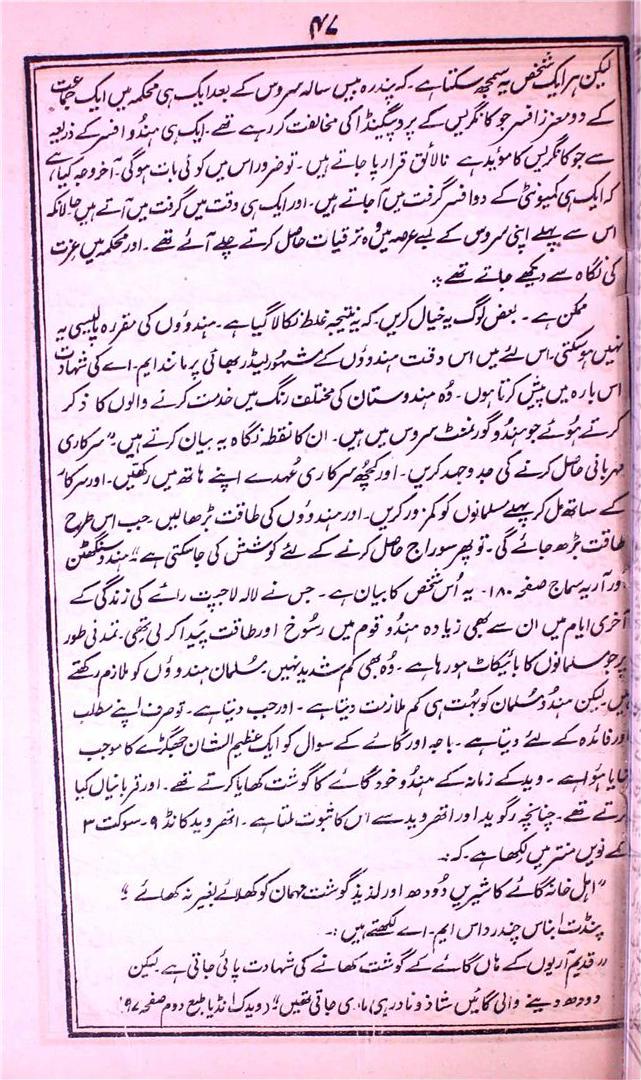 ۴۷
لیکن ہر ایک شخص یہ سمجھ سکتا ہے۔ کہ پندرہ بیس سالہ سروس کے بعد ایک ہی محکمہ میں ایک جماعت
کے دو معزز افسر جو کانگریس کے پروپیگنڈا کی مخالفت کر رہے تھے۔ ایک ہی ہندو افسر کے ذریعہ
سے جو کانگریس کا مؤید ہے نالائق قرار پا جاتے ہیں۔ تو ضرور اس میں کوئی بات ہوگی۔ آخر وجہ کیا ہے
کہ ایک ہی کمیونٹی کے دو افسر گرفت میں آ جاتے ہیں۔ اور ایک ہی وقت میں گرفت میں آتے ہیں حالانکہ
اس سے پہلے اپنی سروس کے لمبے عرصہ میں وُہ ترقیات حاصل کرتے چلے آئے تھے۔ اور محکمہ میں عزت
کی نگاہ سے دیکھے جاتے تھے۔
ممکن ہے۔ بعض لوگ یہ خیال کریں۔ کہ یہ نتیجہ غلط نکالا گیا ہے۔ ہندوؤں کی مقررہ پالیسی یہ
نہیں ہو سکتی۔ اس لئے میں اس وقت ہندوؤں کے مشہور لیڈر بھائی پرمانند ایم۔ اے کی شہادت
اس بارہ میں پیش کرتا ہوں۔ وُہ ہندوستان کی مختلف رنگ میں خدمت کرنے والوں کا ذکر
کرتے ہُوئے جو ہندو گورنمنٹ سروس میں ہیں۔ ان کا نقطہ نگاہ یہ بیان کرتے ہیں:۔ "سرکاری
مہربانی حاصل کرنے کی جدوجہد کریں۔ اور کچھ سرکاری عُہدے اپنے ہاتھ میں رکھیں۔ اور سرکار
کے ساتھ مل کر پہلے مسلمانوں کو کمزور کریں۔ اور ہندوؤں کی طاقت بڑھالیں۔ جب اس طرح
طاقت بڑھ جائے گی۔ تو پھر سوراج حاصل کرنے کے لئے کوشش کی جا سکتی ہے" ہندو سنگھٹن
اور آریہ سماج صفحہ ۱۸۰۔ یہ اُس شخص کا بیان ہے۔ جس نے لالہ لاجپت رائے کی زندگی کے
آخری ایام میں ان سے بھی زیادہ ہندو قوم میں رسُوخ اور طاقت پَیدا کر لی تھی۔ تمدنی طور
پر جو مسلمانوں کا بائیکاٹ ہو رہا ہے۔ وُہ بھی کم شدید نہیں۔ مُسلمان ہندوؤں کو ملازم رکھتے
ہیں۔ لیکن ہندو مُسلمان کو بہُت ہی کم ملازمت دیتا ہے۔ اور جب دیتا ہے۔ تو صرف اپنے مطلب
اور فائدہ کے لئے دیتا ہے۔ باجہ اور گائے کے سوال کو ایک عظیم الشان جھگڑے کا موجب
بنایا ہُوا ہے۔ وید کے زمانہ کے ہندو خود گائے کا گوشت کھایا کرتے تھے۔ اور قربانیاں کیا
کرتے تھے۔ چنانچہ رگوید اور اتھروید سے اس کا ثبوت ملتا ہے۔ اتھروید کانڈ ۹۔ سوکت ۳
کے نویں منتر میں لکھا ہے۔ کہ:۔
"اہل خانہ گائے کا شیریں دُودھ اور لذیذ گوشت مہمان کو کھلائے بغیر نہ کھائے"
پنڈت ابناس چندر داس ایم۔ اے لکھتے ہیں:۔
"قدیم آریوں کے ہاں گائے کے گوشت کھانے کی شہادت پائی جاتی ہے۔ لیکن
دودھ دینے والی گائیں شاذ و نادر ہی ماری جاتی تھیں" (ویدک انڈیا طبع دوم صفحہ ۹۷)